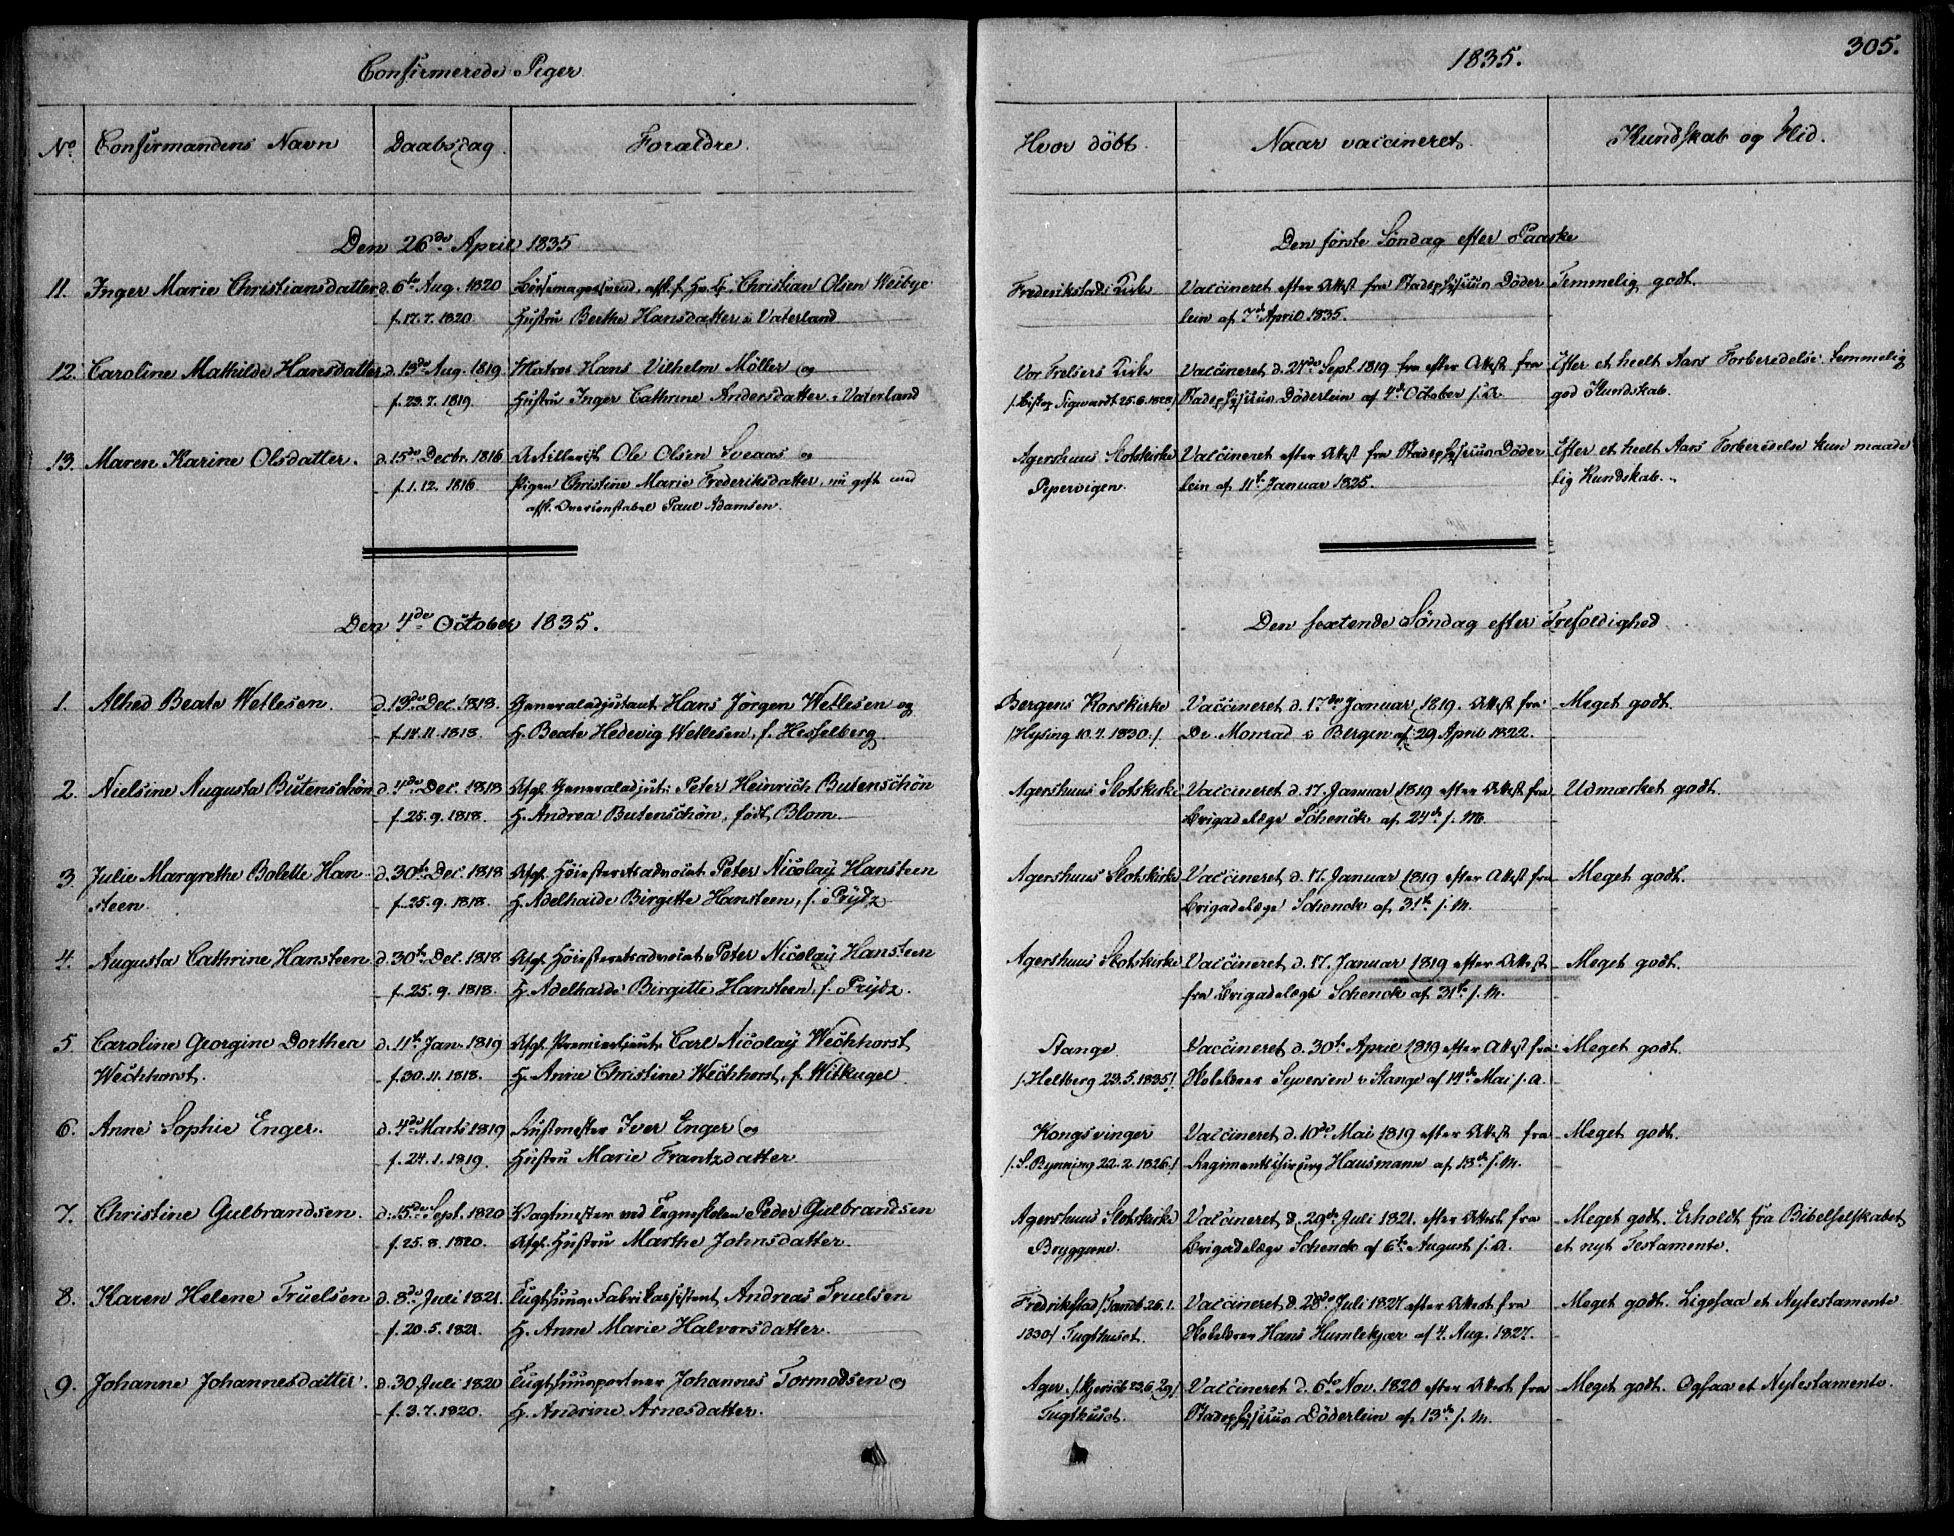 Confirmerede Piger.
No Confirmandens Navn Daabsdag Forældre.
Den 26de April 1835
11. Inger Marie Christiansdatter d. 6te Aug. 1820 Christian Olsen Weibye
f. 17. 7. 1820 Hustru Berthe Hansdatter i Vaterland
12. Caroline Mathilde Hansdatter d. 13de Aug. 1819 Matros Hans Vilhelm Möller og
f. 23. 7. 1819 Hustru Inger Cathrine Andersdatter i Vaterland
13. Maren Karine Olsdatter. d. 15de Decbr. 1816 Artillerist Ole Olsen Sveaas og
f. 1. 12. 1816 Pigen Christine Marie Frederiksdatter, nu gift med
afsk. Overconstabel Paul Adamsen.
Den 4de October 1835.
1. Alhed Beate Wetlesen. d. 13de Dec. 1818. Generaladjutant Hans Jörgen Wetlesen og
f. 14. 11. 1818. H. Beate Hedevig Wetlesen, f. Hesselberg.
2. Nielsine Augusta Butenschön d. 4de Dec. 1818 Afg. Generaladjut: Peter Heinrich Butenschön
f. 25. 9. 1818. H. Andrea Butenschön, födt Blom.
3. Julie Margrethe Bolette Han- d. 30te Dec. 1818 Afg. Höiesteretsadvocat Peter Nicolay Hansteen
steen. f. 25. 9. 1818. H. Adelhaide Birgitte Hansteen, f. Prydz
4. Augusta Cathrine Hansteen d. 30te Dec. 1818 Afg. Höiesteretsadvocat Peter Nicolay Hansteen
f. 25. 9. 1818. H. Adelhaide Birgitte Hansteen, f. Prydz.
5. Caroline Georgine Dorthea d. 11te Jan. 1819 Afg. Premierlieut. Carl Nicolay Wechhorst
Wechhorst. f. 30. 11. 1818. H. Anne Christine Wechhorst, f. Witkugel
6. Anne Sophie Enger. d. 4de Marts 1819 Rustmester Iver Enger og
f. 24. 1. 1819. Hustru Marie Frantzdatter
7. Christine Gulbrandsen. d. 15de Sept. 1820 Vagtmester ved Tegneskolen Peder Gulbrandsen
f. 25. 8. 1820. Afg. Hustru Marthe Johnsdatter.
8. Karen Helene Truelsen d. 8de Juli 1821. Tugthuus-Fabrikassistent Andreas Truelsen
f. 20. 5. 1821. H. Anne Marie Halvorsdatter.
9. Johanne Johannesdatter. d. 30 Juli 1820 Tugthuusportner Johannes Tormodsen og
f. 3. 7. 1820. H. Andrine Arnesdatter.
1835. 305.
Hvor döbt. Naar vaccineret. Kundskab og Flid.
Den förste Söndag efter Paaske
Frederikstads Kirke Vaccineret efter Attest fra Stadsphysicus Döder- Temmelig godt.
lein af 7de April 1835.
Vor Frelsers Kirke Vaccineret d. 21de Sept. 1819 efter Attest fra Efter et heelt Aars Forberedelse temmelig
Stadsphysicus Döderlein af 4de October s. A. god Kundskab.
Agershuus Slotskirke Vaccineret efter Attest fra Stadsphysicus Döder- Efter et heelt Aars Forberedelse kun maade-
Pepervigen. lein af 11te Januar 1825. lig Kundskab.
Den sextende Söndag efter Trefoldighed
Bergens Korskirke Vaccineret d. 17de Januar 1819. Attest fra Meget godt.
/:Hysing 10. 7. 1830:/. Dr. Monrad i Bergen af 29 April 1822.
Agershuus Slotskirke Vaccineret d. 17. Januar 1819 efter Attest fra Udmærket godt.
Brigadelæge Schenck af 24de s. M.
Agershuus Slotskirke Vaccineret d. 17. Januar 1819 efter Attest fra Meget godt.
Brigadelæge Schenck af 31te s. M.
Agershuus Slotskirke Vaccineret d. 17. Januar 1819 efter Attest Meget godt.
fra Brigadelæge Schenck af 31te s. M.
Stange Vaccineret d. 30te April 1819 efter Attest fra Meget godt.
/:Heltberg 23. 5. 1835/. Syversen i Stange af 14de Mai s. A.
Kongsvinger Vaccineret d. 10de Mai 1819 efter Attest fra Meget godt.
/:S. Bynning 22. 2. 1826:/ Regimentschirurg Hausmann af 13de s. M.
Agershuus Slotskirke Vaccineret d. 29de Juli 1821. efter Attest fra Meget godt. Erholdt fra Bibelselskabet
Bryggerne. Brigadelæge Schenck af 6te August s. A. et nyt Testamente.
Fredrikstad 26. 1. Vaccineret d. 28de Juli 1827 efter Attest fra Meget godt. Ligesaa et Nytestamente
1830/ Tugthuset. Hans Humlekjær af 4. Aug. 1827.
Ager. Vaccineret d. 6te Nov. 1820 efter Attest fra Meget godt. Ogsaa et Nytestamente.
Tugthuset. Stadsphysicus Döderlein af 13de s. M.